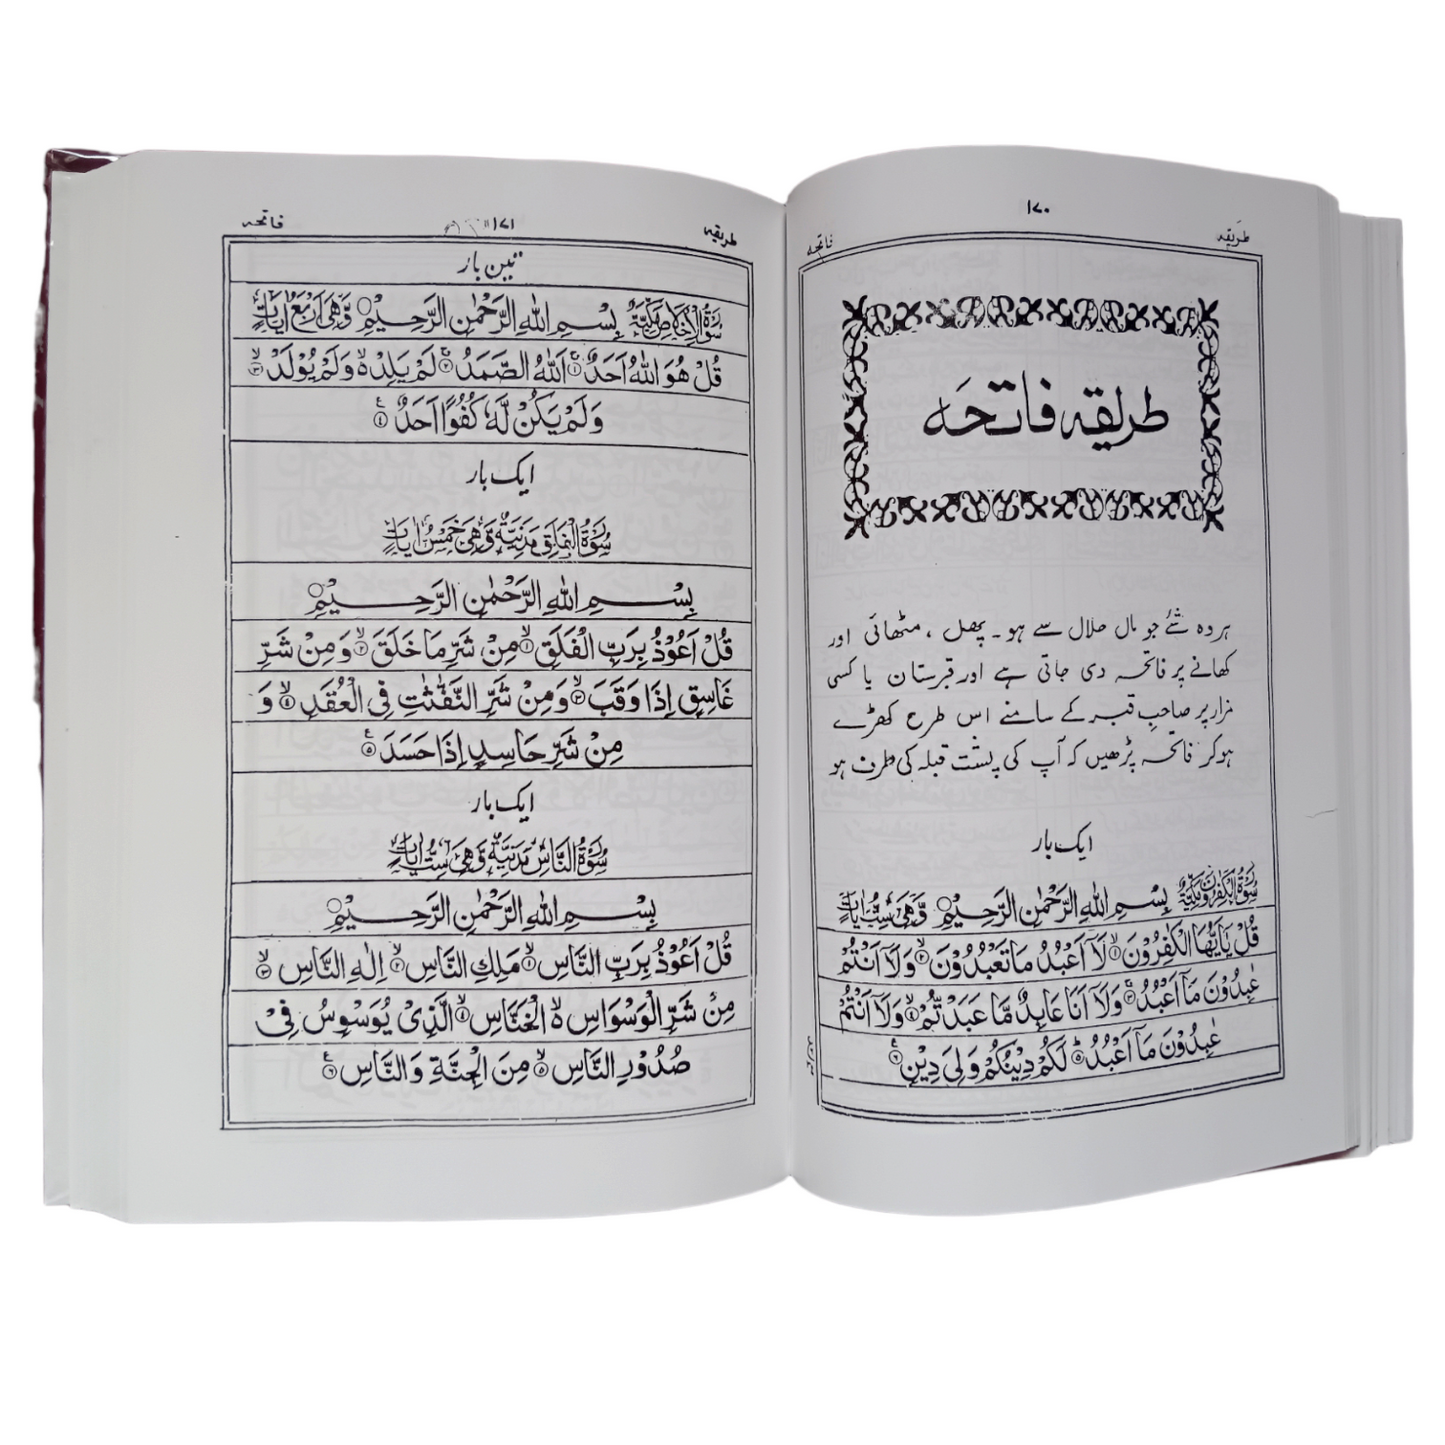 ۱۷۰
طریقہ
فاتحہ
طریقہ فاتحہ
ہر وہ شئے جو مال حلال سے ہو۔ پھل، مٹھائی اور
کھانے پر فاتحہ دی جاتی ہے اور قبرستان یا کسی
مزار پر صاحبِ قبر کے سامنے اس طرح کھڑے
ہو کر فاتحہ پڑھیں کہ آپ کی پشت قبلہ کی طرف ہو
ایک بار
سُوْرَةُ الْكٰفِرُوْنَ مَكِّيَّةٌ بِسْمِ اللهِ الرَّحْمٰنِ الرَّحِيْمِ وَّهِىَ سِتُّ اٰيَاتٍ
قُلْ يٰۤاَيُّهَا الْكٰفِرُوْنَ ۙ۱ لَاۤ اَعْبُدُ مَا تَعْبُدُوْنَ ۙ۲ وَلَاۤ اَنْتُمْ
عٰبِدُوْنَ مَاۤ اَعْبُدُ ۚ۳ وَلَاۤ اَنَا عَابِدٌ مَّا عَبَدْتُّمْ ۙ۴ وَلَاۤ اَنْتُمْ
عٰبِدُوْنَ مَاۤ اَعْبُدُ ؕ۵ لَكُمْ دِيْنُكُمْ وَلِىَ دِيْنِ ۶
طریقہ
۱۷۱
فاتحہ
تین بار
سُوْرَةُ الْاِخْلَاصِ مَكِّيَّةٌ بِسْمِ اللهِ الرَّحْمٰنِ الرَّحِيْمِ وَّهِىَ اَرْبَعُ اٰيَاتٍ
قُلْ هُوَ اللهُ اَحَدٌ ۚ۱ اَللهُ الصَّمَدُ ۚ۲ لَمْ يَلِدْ ۙ وَلَمْ يُوْلَدْ ۙ۳
وَلَمْ يَكُنْ لَّهٗ كُفُوًا اَحَدٌ ۴
ایک بار
سُوْرَةُ الْفَلَقِ مَدَنِيَّةٌ وَّهِىَ خَمْسُ اٰيَاتٍ
بِسْمِ اللهِ الرَّحْمٰنِ الرَّحِيْمِ
قُلْ اَعُوْذُ بِرَبِّ الْفَلَقِ ۙ۱ مِنْ شَرِّ مَا خَلَقَ ۙ۲ وَمِنْ شَرِّ
غَاسِقٍ اِذَا وَقَبَ ۙ۳ وَمِنْ شَرِّ النَّفّٰثٰتِ فِى الْعُقَدِ ۙ۴ وَ
مِنْ شَرِّ حَاسِدٍ اِذَا حَسَدَ ۵
ایک بار
سُوْرَةُ النَّاسِ مَدَنِيَّةٌ وَّهِىَ سِتُّ اٰيَاتٍ
بِسْمِ اللهِ الرَّحْمٰنِ الرَّحِيْمِ
قُلْ اَعُوْذُ بِرَبِّ النَّاسِ ۙ۱ مَلِكِ النَّاسِ ۙ۲ اِلٰهِ النَّاسِ ۙ۳
مِنْ شَرِّ الْوَسْوَاسِ ۙ الْخَنَّاسِ ۙ۴ الَّذِىْ يُوَسْوِسُ فِىْ
صُدُوْرِ النَّاسِ ۙ۵ مِنَ الْجِنَّةِ وَالنَّاسِ ۶